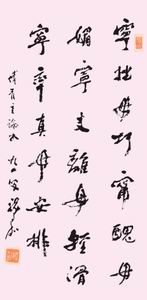 寧拙毋巧寧醜毋
媚寧支離毋輕滑
寧率真毋安排
傅青主論書